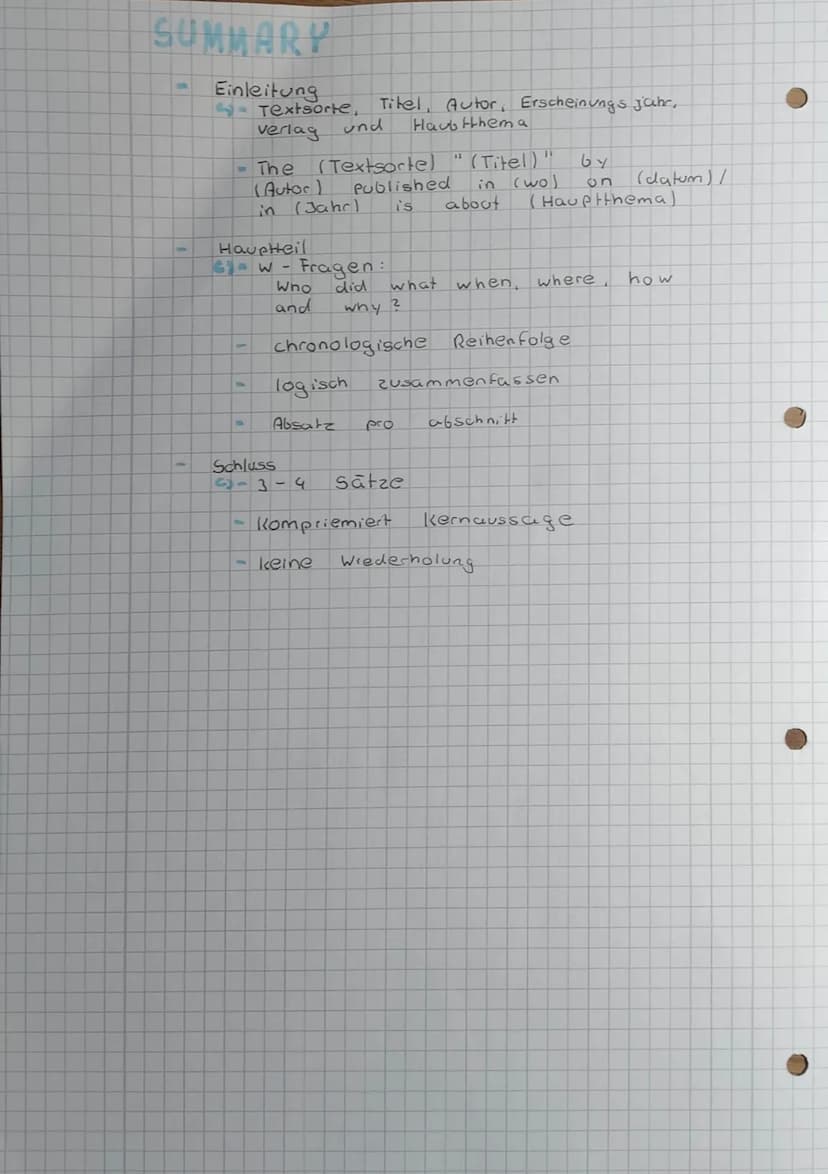 SUMMARY
- Einleitung
↳ - Textsorte, Titel, Autor, Erscheinungsjahr,
verlag und Haubtthema
- The (Textsorte) "(Titel)" by
(Autor) published in (wo) on (datum) /
in (Jahr) is about (Hauptthema)
- Hauptteil
↳ - W - Fragen:
Who did what when, where, how
and why?
- chronologische Reihenfolge
- logisch zusammenfassen
- Absatz pro abschnitt
- Schluss
↳ - 3 - 4 Sätze
- Kompriemiert Kernaussage
- keine Wiederholung